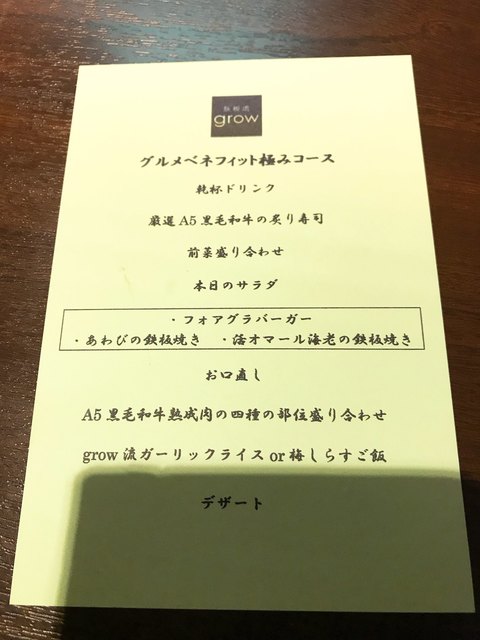 鉄板焼
grow
グルメベネフィット極みコース
乾杯ドリンク
厳選A5黒毛和牛の炙り寿司
前菜盛り合わせ
本日のサラダ
・フォアグラバーガー
・あわびの鉄板焼き ・活オマール海老の鉄板焼き
お口直し
A5黒毛和牛熟成肉の四種の部位盛り合わせ
grow流ガーリックライスor梅しらすご飯
デザート